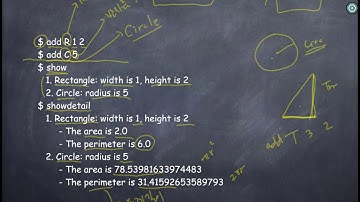 Circle
$ add R 1 2
$ add C 5
$ show
1. Rectangle: width is 1, height is 2
2. Circle: radius is 5
$ showdetail
1. Rectangle: width is 1, height is 2
- The area is 2.0
- The perimeter is 6.0
2. Circle: radius is 5
- The area is 78.53981633974483
- The perimeter is 31.41592653589793
πr²
2πr
add T 3 2